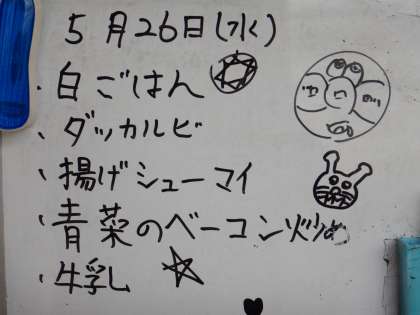 5月26日(水)
・白ごはん
・ダッカルビ
・揚げシューマイ
・青菜のベーコン炒め
・牛乳